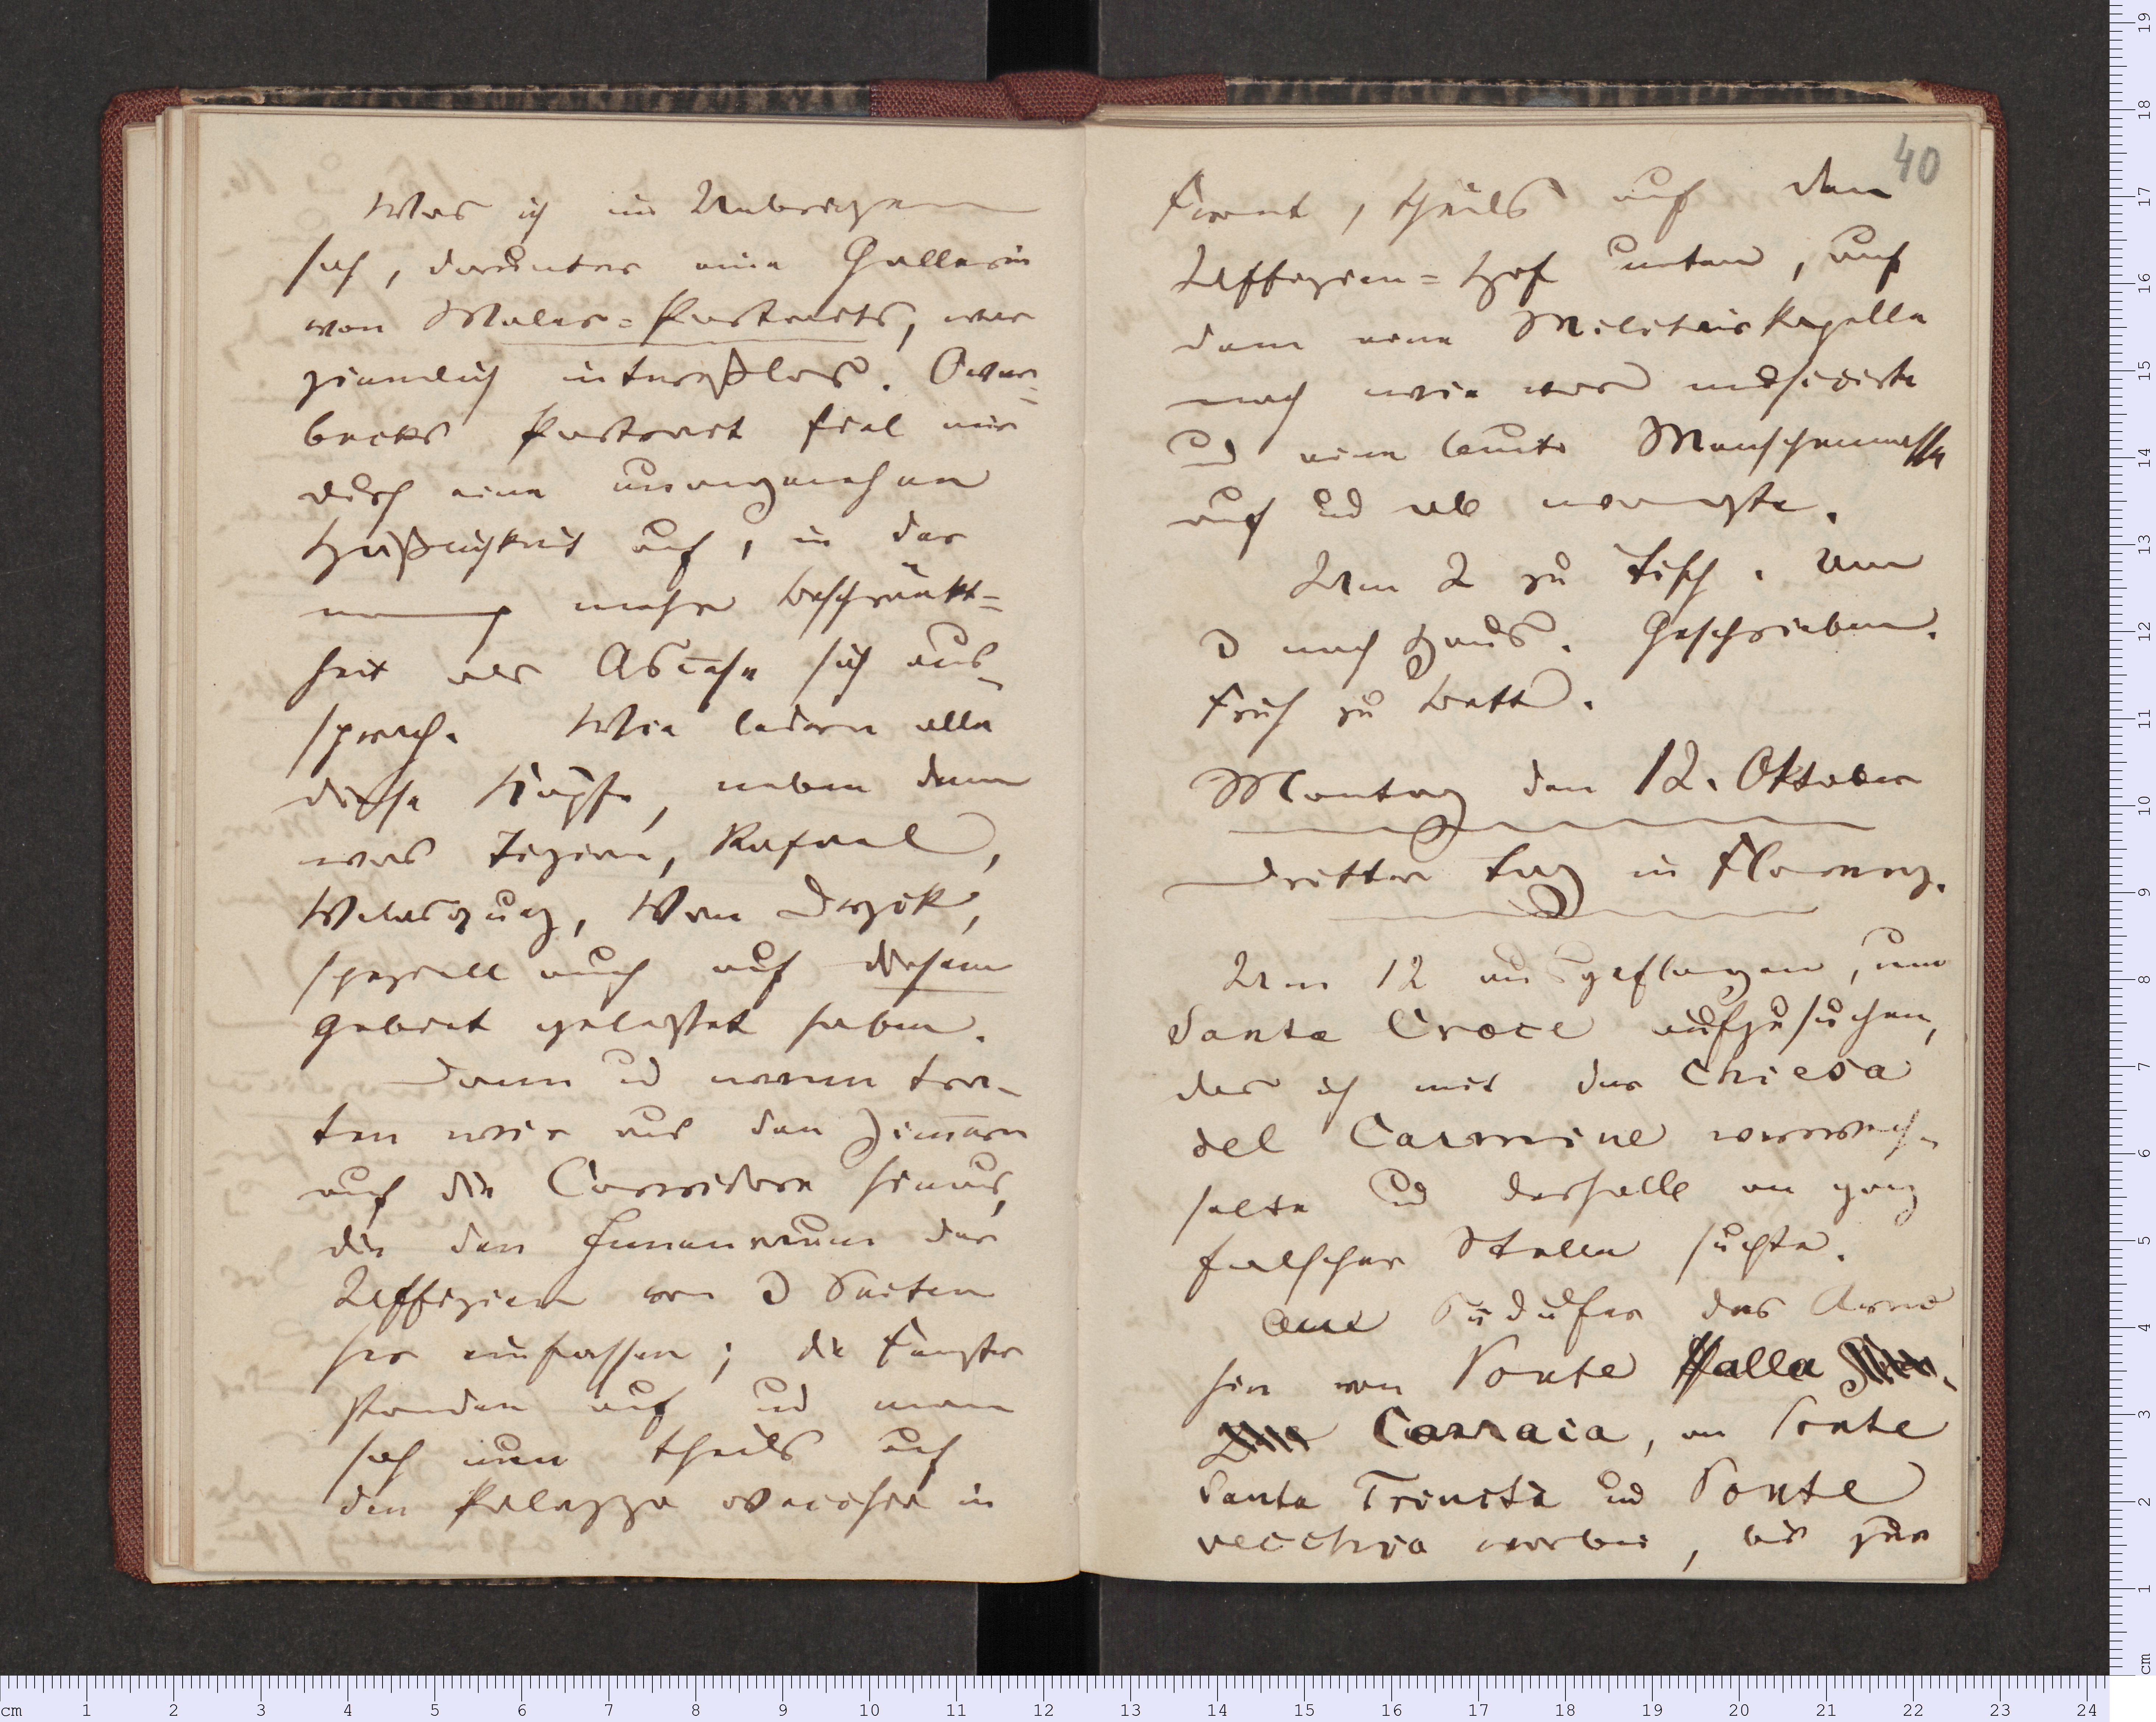 Was ich im Uebrigen
sah, darunter eine Gallerie
von Maler=Portraits, war
ziemlich intereßelos. Over=
becks Portrait fiel mir
durch eine unangenehme
Häßlichkeit auf, in der
mehr Beschränkt=
heit als Ascese sich aus-
sprach. Wie ledern alle
diese Köpfe, neben dem
was Tizian, Rafael,
Velasquez, Van Dyck,
speziell auch auf diesem
Gebiet geleistet haben.
Dann und wann tra-
ten wir aus den Zimmern
auf die Corridore hinaus,
die den Innenraum der
Uffizien von 3 Seiten
her einfassen; die Fenster
standen auf und man
sah nun theils auf
den Palazzo vecchio in
40
Front, theils auf den
Uffizien=Hof unten, auf
dem eine Militairkapelle
nach wie vor musicirte
und eine bunte Menschenmasse
auf und ab wogte.
Um 2 zu Tisch. Um
3 nach Haus. Geschrieben.
Früh zu Bett.
Montag den 12. Oktober
Dritter Tag in Florenz.
Um 12 ausgeflogen, um
Santa Croce aufzusuchen,
das ich mit der Chiesa
del Carmine verwech-
selte und deshalb an ganz
falscher Stelle suchte.
Am Südufer des Arno
hin von Ponte alla
Carraia, an Ponte
Santa Trinità und Ponte
vecchio vorbei, bis zur